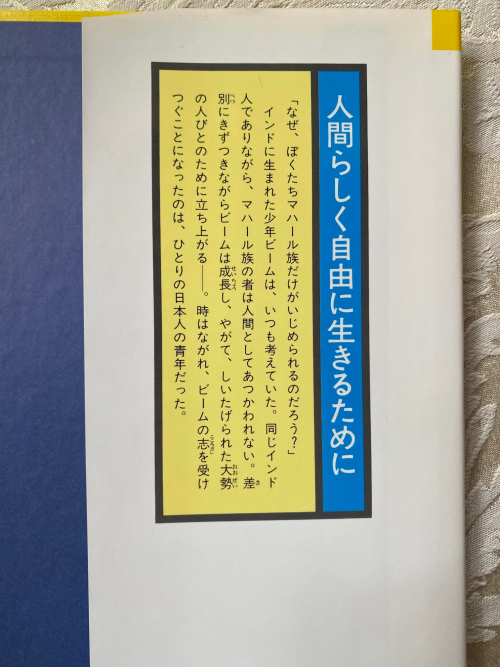 人間らしく自由に生きるために
「なぜ、ぼくたちマハール族だけがいじめられるのだろう？」
インドに生まれた少年ビームは、いつも考えていた。同じインド
人でありながら、マハール族の者は人間としてあつかわれない。差
別にきずつきながらビームは成長し、やがて、しいたげられた大勢
の人びとのために立ち上がる——。時はながれ、ビームの志を受け
つぐことになったのは、ひとりの日本人の青年だった。